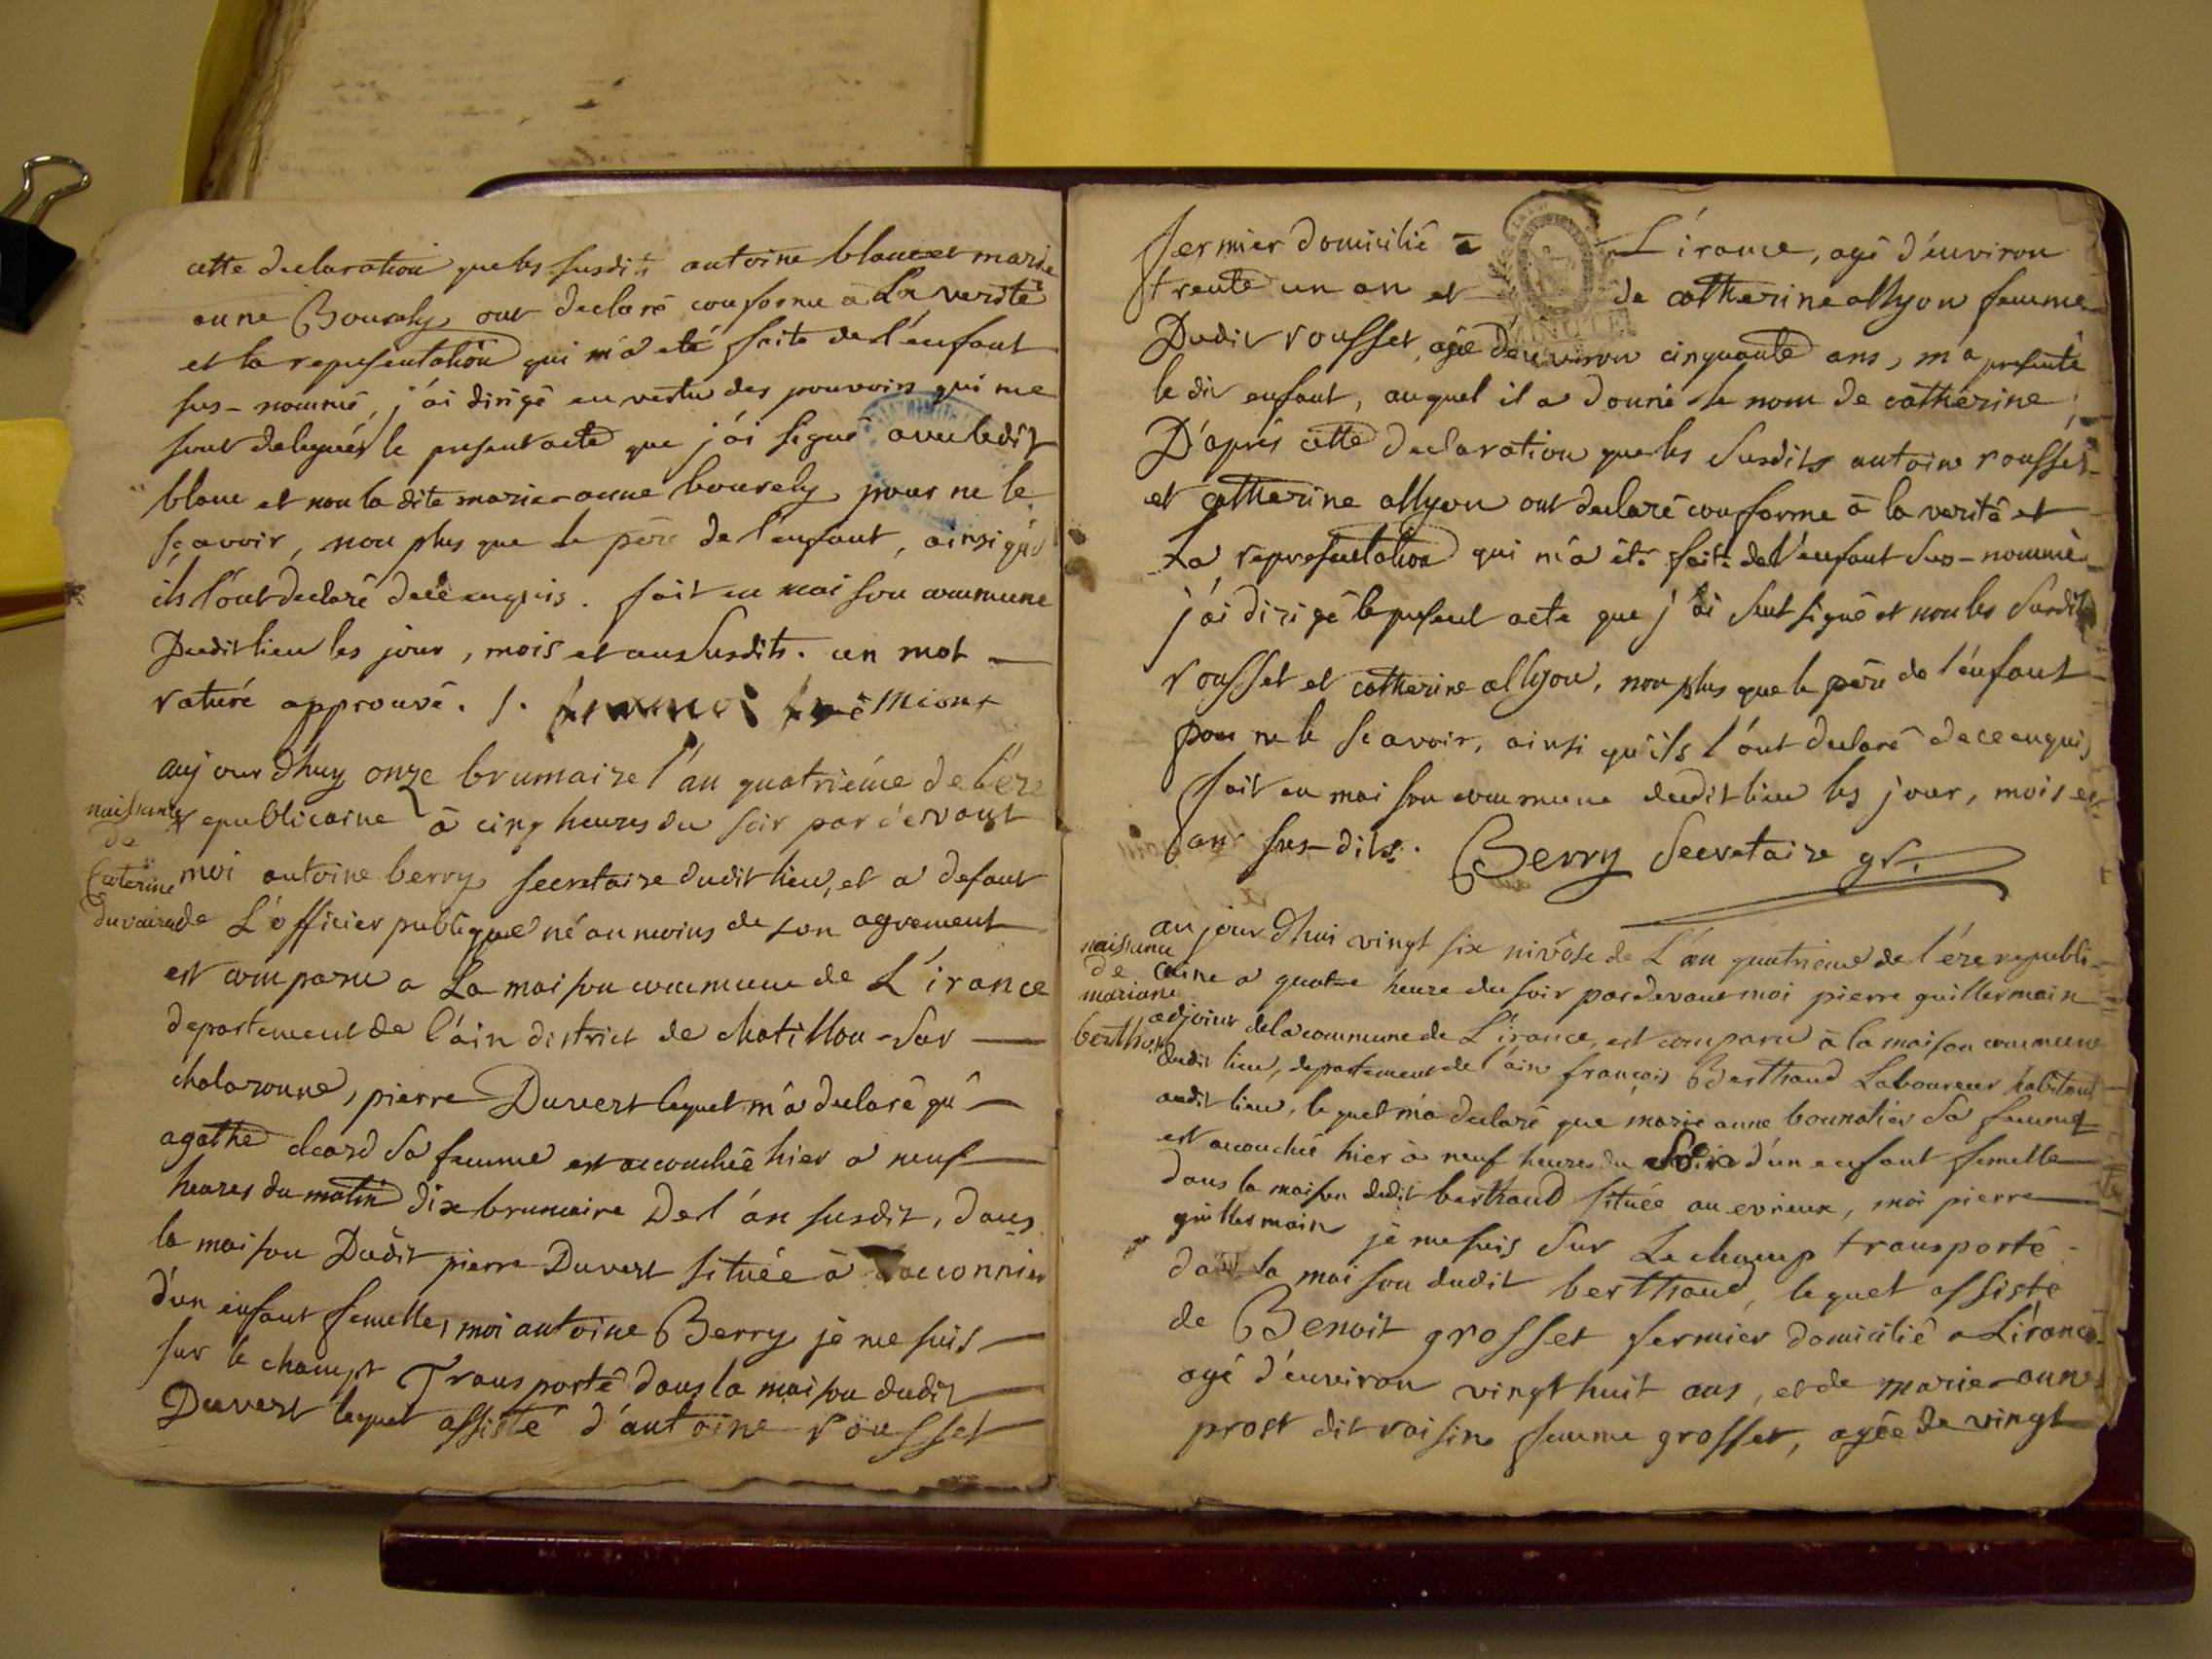 cette declaration que les susdits antoine blanc et marie
anne Bourely ont declaré conforme a La verité
et la representation qui m'a eté faite de l'enfant
sus-nommé, j'ai dirigé en vertu des pouvoirs qui me
sont delegués le present acte que j'ai signé avec ledit
blanc et non la dite marie-anne bourely pour ne le
scavoir, non plus que le père de l'enfant, ainsi qu'
ils l'ont declaré de ce enquis. fait en maison commune
Dudit lieu les jour, mois et an susdits. un mot
raturé approuvé.
aujourdhuy onze brumaire l'an quatriéme de l'ére
republicaine à cinq heures du soir par devant
naissance
de
Caterine
moi antoine berry secretaire dudit lieu, et a defaut
de L'officier publique né anmoins de son agrement
est comparu a La maison commune de L'irance
departement de l'ain district de chatillon-sur
chalaronne, pierre Duvert lequel m'a declaré qu'
agathe sa femme est accouchée hier a neuf
heures du matin dix brumaire De l'an susdit, dans
la maison Dudit pierre Duvert située à
d'un enfant femelle, moi antoine Berry je me suis
sur le champt Transporté dans la maison dudit
Duvert lequel assisté d'antoine rousset
fermier domicilié a L'irance, agé d'environ
trente un an et de catherine allyon femme
Dudit rousset, agée d'environ cinquante ans, m'a presenté
le dit enfant, auquel il a donné le nom de catherine;
D'aprés cette declaration que les Susdits antoine rousset
et catherine allyon ont declaré conforme à la verité et
La representation qui m'a été faite de l'enfant Sus-nommé
j'ai dirigé le present acte que j'ai seul signé et non les Susdits
rousset et catherine allyon, non plus que le père de l'enfant
pour ne le scavoir, ainsi qu'ils l'ont declaré de ce enquis
fait en maison commune dudit lieu les jour, mois et
an sus-dits. Berry Secretaire gr.
aujourd'hui vingt six nivôse de L'an quatrieme de l'ére republi-
naissance
de
mariane
caine a quatre heure du soir pardevant moi pierre guillermain
adjoint de la commune de L'irance, est comparu à la maison commune
dudit lieu, departement de l'ain françois Berthaud Laboureur habitant
audit lieu, lequel m'a declaré que marie anne bonnatier Sa femme
est accouchée hier à neuf heures du Soir d'un enfant femelle
dans la maison dudit berthaud située au evrieux, moi pierre
guillermain je me suis Sur Le champ transporté
dans la maison dudit berthaud, lequel assisté
de Benoit grosset fermier domicilié a L'irance
agé d'environ vingt huit ans, et de marie-anne
prost dit voisin femme grosset, agée de vingt